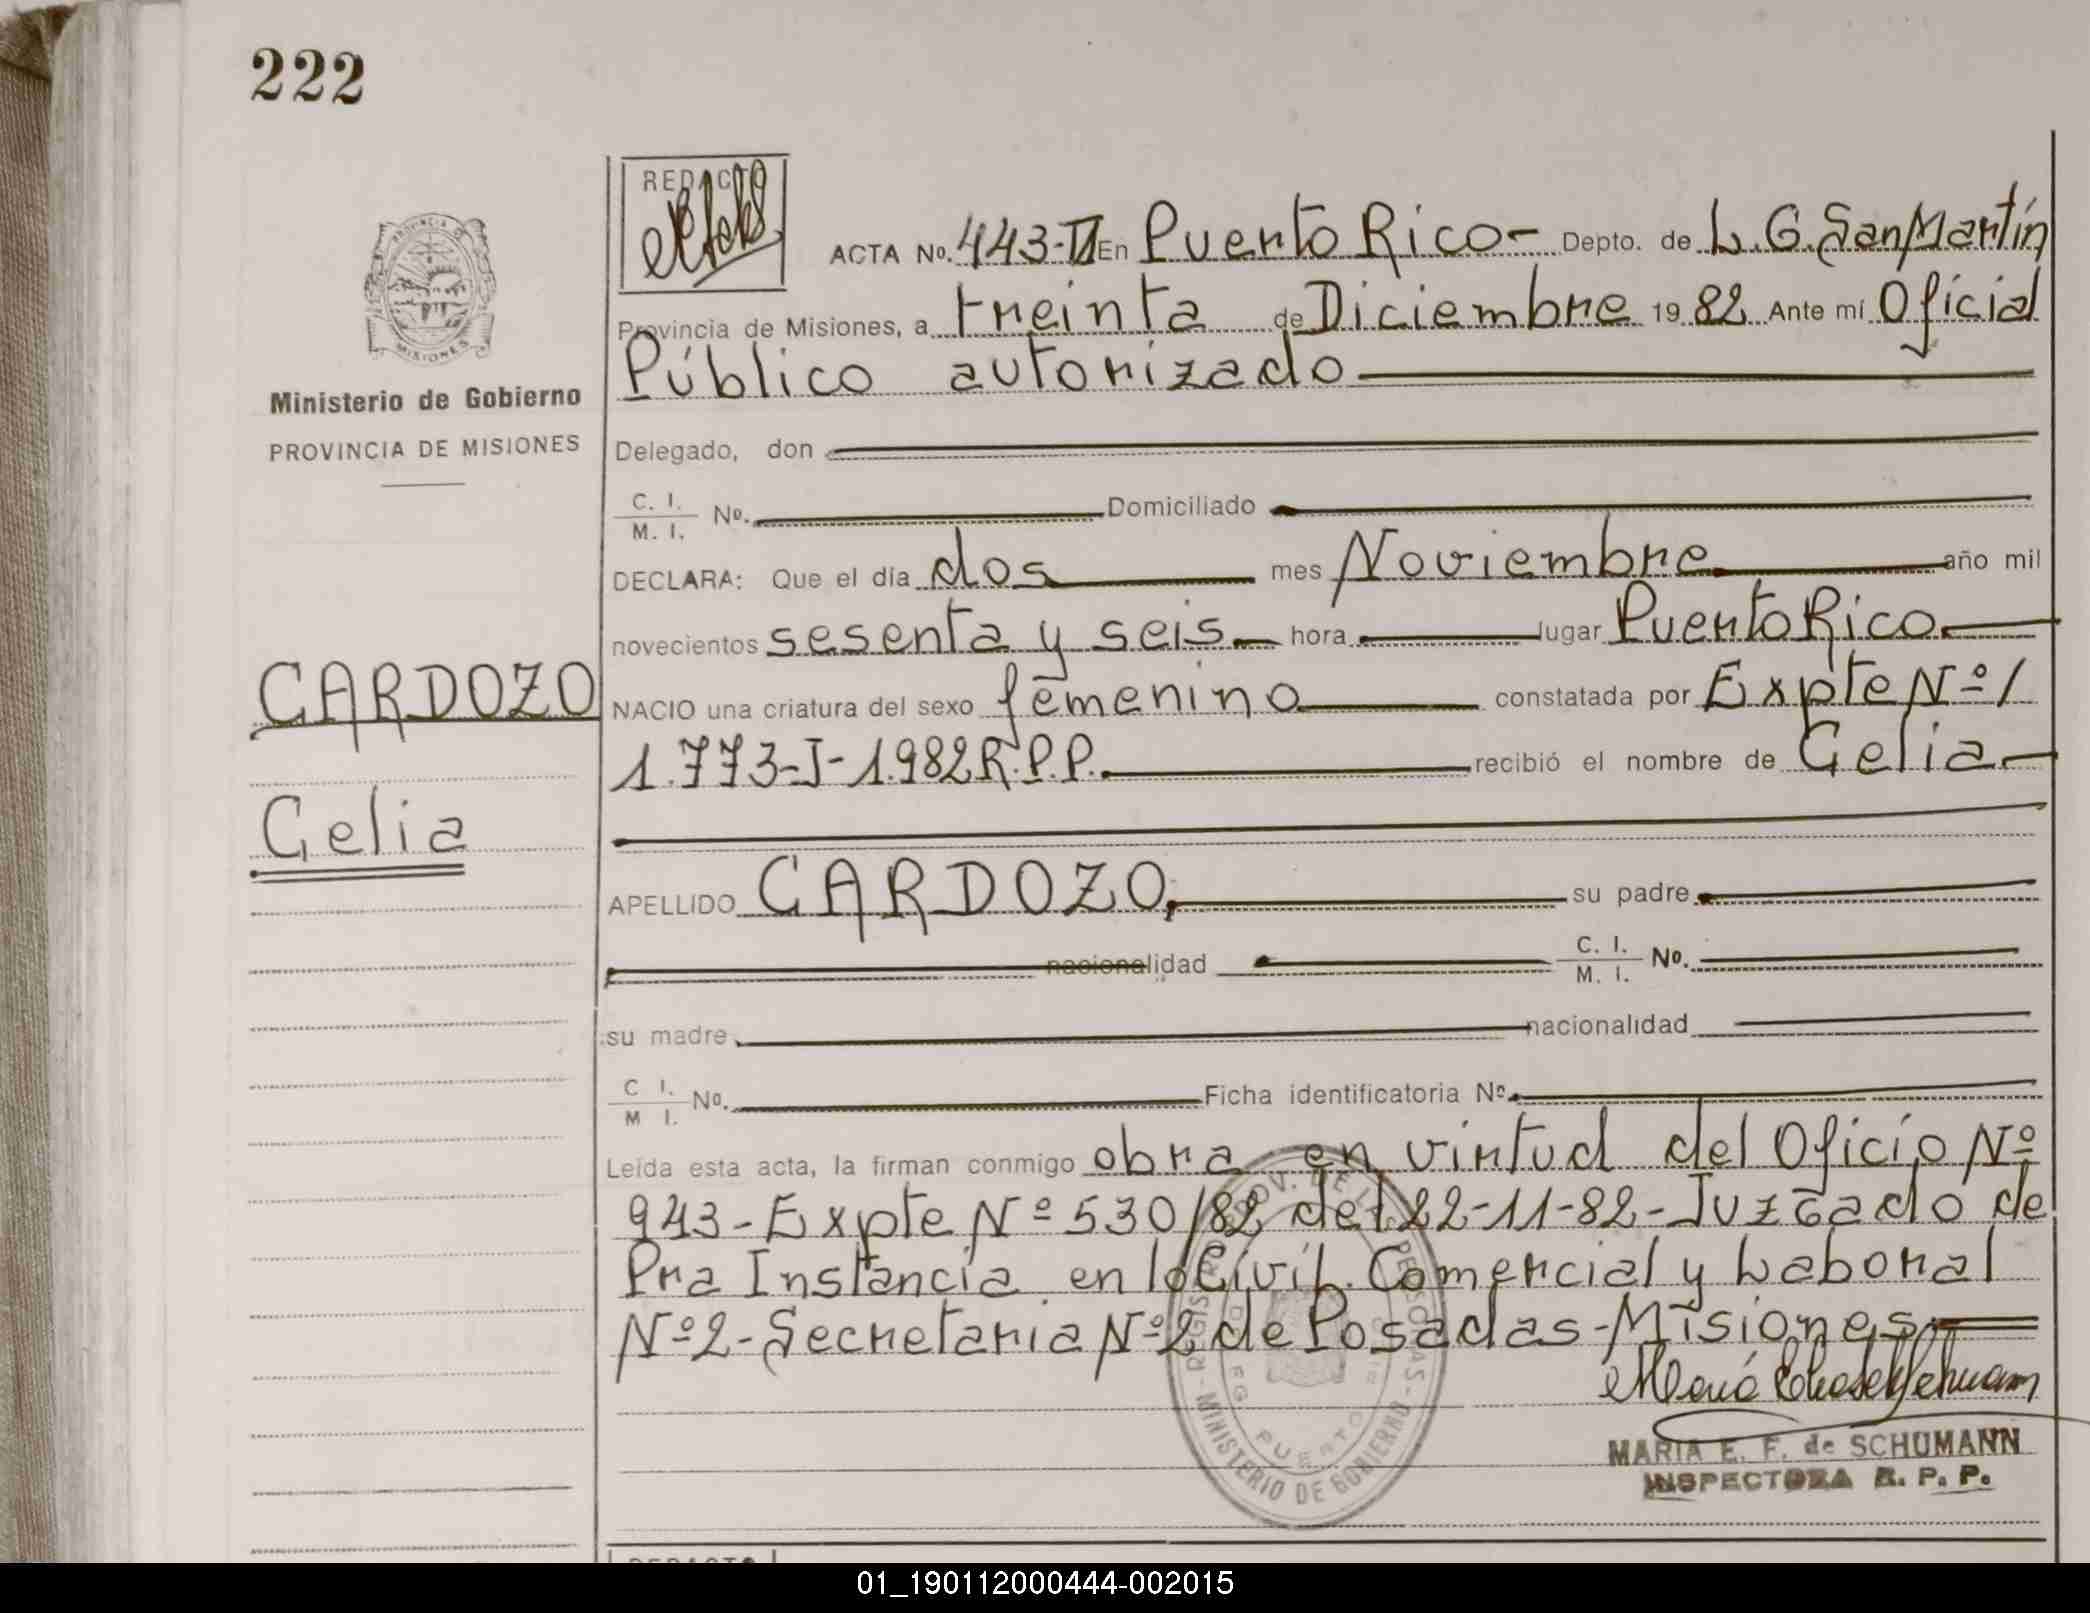 222
REDACTO
ACTA No. 443-II En Puerto Rico- Depto. de L. G. San Martín
Provincia de Misiones, a treinta de Diciembre 19 82 Ante mí Oficial
Público autorizado
PROVINCIA DE
MISIONES
Ministerio de Gobierno
PROVINCIA DE MISIONES
Delegado, don
C. I.
M. I. No. Domiciliado
DECLARA: Que el día dos mes Noviembre año mil
novecientos sesenta y seis hora lugar Puerto Rico.
CARDOZO
NACIO una criatura del sexo femenino constatada por Expte Nº 1
1.773-J-1.982 R.P.P. recibió el nombre de Celia
Celia
APELLIDO CARDOZO, su padre
nacionalidad C. I.
M. I. No.
su madre nacionalidad
C I.
M I. No. Ficha identificatoria Nº
Leída esta acta, la firman conmigo obra en virtud del Oficio Nº
943-Expte Nº 530/82 del 22-11-82-Juzgado de
Pra Instancia en lo Civil. Comercial y Laboral
Nº 2-Secretaria Nº 2 de Posadas-Misiones
REGISTRO PROV. DE LAS PERSONAS - MINISTERIO DE GOBIERNO
PUERTO
MARIA E. F. de SCHUMANN
INSPECTORA R. P. P.
REDACTO
01_190112000444-002015